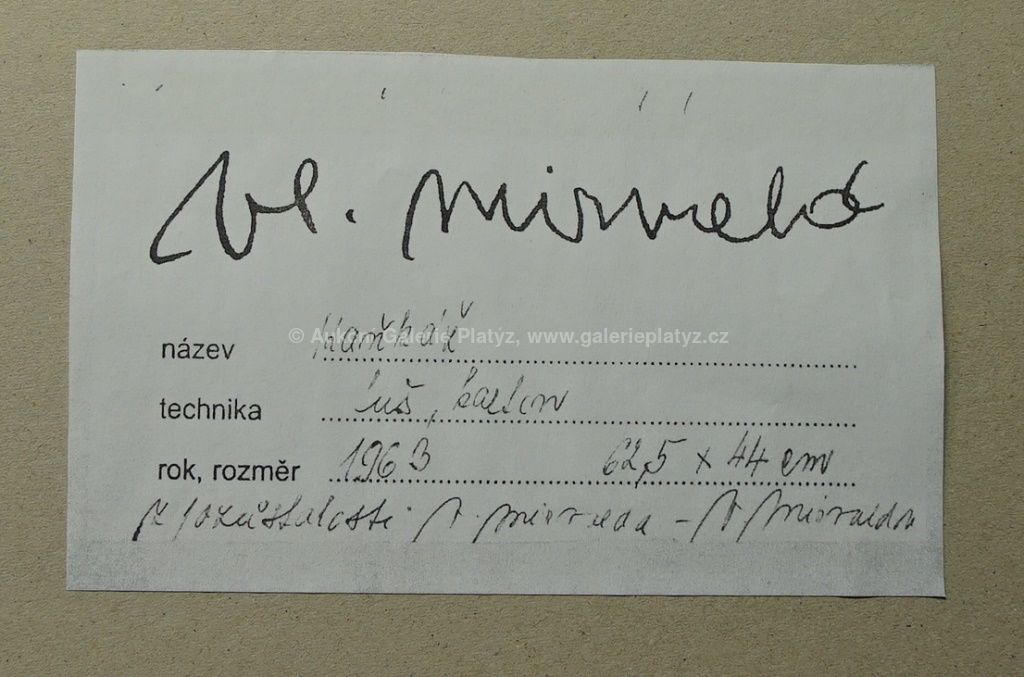 Vl. Mirvald
název
© Aukční Galerie Platýz, www.galerieplatyz.cz
technika tuš, karton
rok, rozměr 1963 62,5 x 44 cm
z pozůstalosti V. Mirvalda - V Mirvaldn